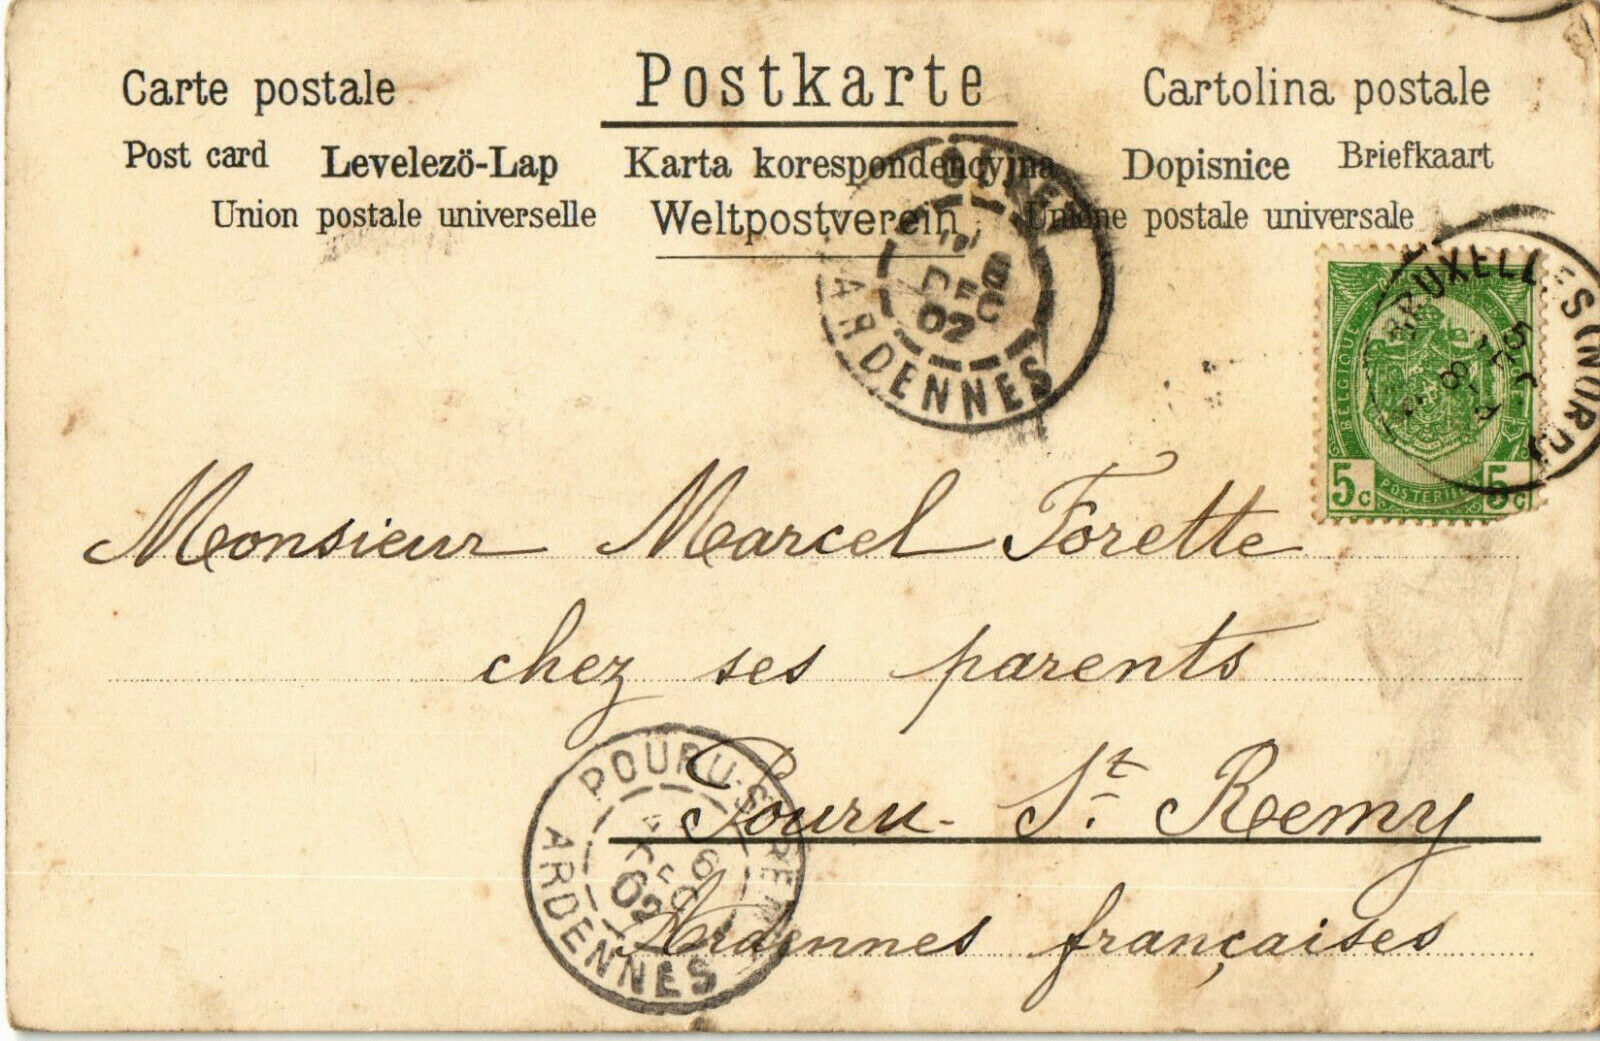 Carte postale Postkarte Cartolina postale
Post card Levelezö-Lap Karta korespondencyjna Dopisnice Briefkaart
Union postale universelle Weltpostverein Unione postale universale
ARDENNES
DEC
02
BRUXELLES (NORD)
BELGIQUE
5c 5c
Monsieur Marcel Forette
chez ses parents
Pouru-St. Remy
Ardennes françaises
POURU-ST REMY
6
DEC
02
ARDENNES